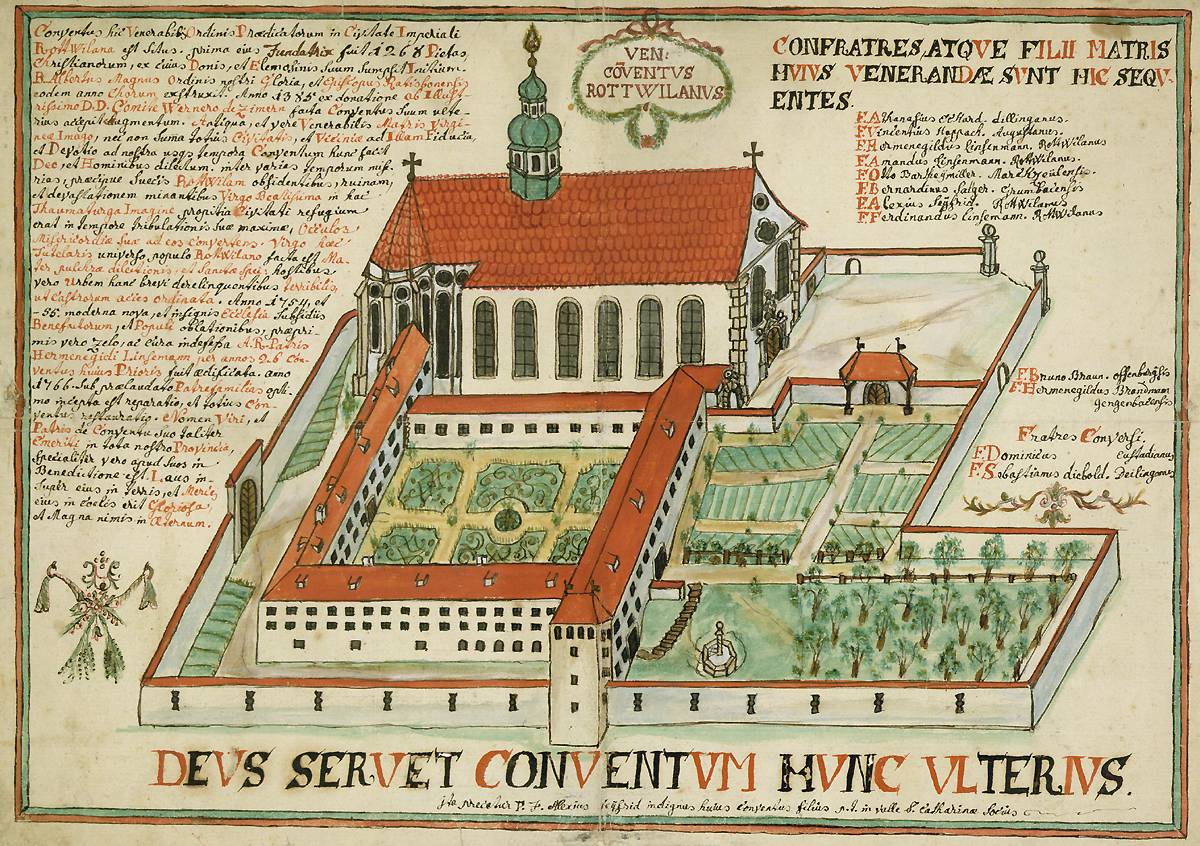 Conventus hic Venerabilis Ordinis Prædicatorum in Civitate Imperiali
RottWilana est situs. prima eius Fundatrix fuit 1268 Pietas,
Christianorum, ex cuius Donis, et Elemosinis suum sumpsit Initium.
B. Albertus Magnus Ordinis nostri Gloria, et Episcopus Ratisbonensis
eodem anno Chorum exstruxit. Anno 1385 ex donatione ab Illust-
rissimo D.D. Comite Wernero de Zimern facta Conventus suum ulte-
rius accepit Augmentum. Antiqua, et vere Venerabilis Matris Virgi-
neæ Imago, nec non suma totius Civitatis, et Viciniæ ad Illam Fiducia,
et Devotio ad nostra usq; tempora Conventum hunc facit
Deo, et Hominibus dilectum. inter varias temporum mise-
rias, præcipue Suecis RottWilam obsidentibus, ruinam,
et devastationem minantibus Virgo Beatissima in hac
Thaumaturga Imagine propitia Civitati refugium
erat in tempore tribulationis suæ maximæ, Occulos
Misericordiæ suæ ad eos convertens. Virgo hæc
Tutelaris universo populo RottWilano facta est Ma-
ter pulchræ dilectionis, et Sanctæ Spei, hostibus
vero Urbem hanc brevi derelinquentibus terribilis,
ut Castrorum acies ordinata. Anno 1754, et
-55. moderna nova, et insignis Ecclesia Subsidiis
Benefactorum, et Populi oblationibus, præpri-
mis vero zelo, ac cura indefessa A.R. Patris
Hermenegildi Linsemann per annos 26 Con-
ventus huius Prioris fuit ædificata. anno
1766. Sub prælaudato Patrefamilias opti-
mo incepta est reparatio, et totius Con-
ventus restauratio. Nomen Viri, et
Patris de Conventu suo taliter
Emeriti in tota nostra Provincia,
specialiter vero apud Suos in
Benedictione est. Laus in-
super eius in terris, et Merces
eius in coelis erit Gloriosa,
et Magna nimis in Æternum.
VEN:
CŌVENTVS
ROTTWILANVS
CONFRATRES, ATQVE FILII MATRIS
HVIVS VENERANDÆ SVNT HIC SEQV-
ENTES.
F. Athanasius Eckhard. dillinganus.
F. Vincentius Happach. Augustanus.
F. Hermenegildus Linsenmann. RottWilanus
F. Amandus Linsemann. RottWilanus.
F. Otto Bartheymiller.
F. Bernardinus Salger.
F. Alexius Seyfrid. RottWilanus
F. Ferdinandus Linsemann. RottWilanus
F. Bruno Braun. offenburgensis
F. Hermenegildus Brandmam
gengenbacensis
Fratres Conversi.
F. Dominicus Eustadianus
F. Sebastianus diebold. Deilinganus
DEVS SERVET CONVENTVM HVNC VLTERIVS.
ita precatur P. F. Alexius Seyfrid indignus huius conventus filius p.t. in valle S. Catharinæ Socius